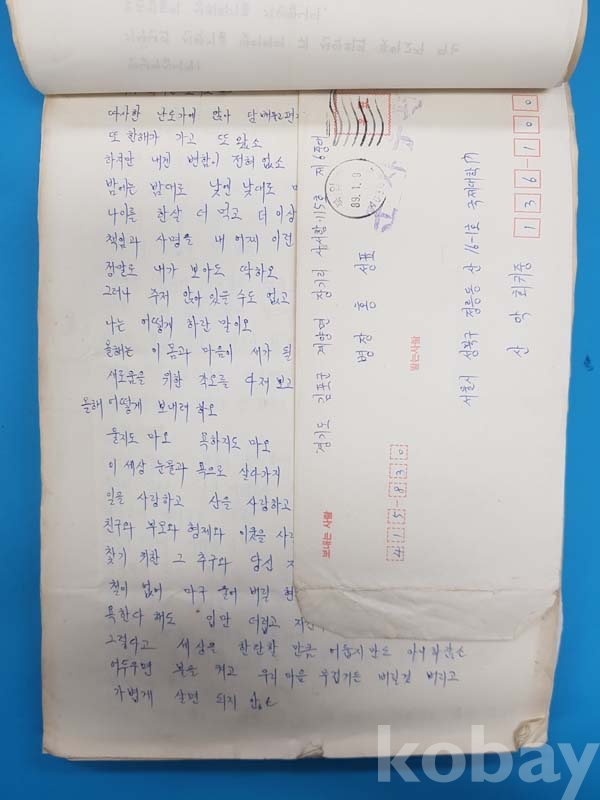 따사한 난로가에 앉아 담배물고 편
또 한해가 가고 또 왔소
하지만 내겐 변함이 전혀 없소
밤이면 밤대로 낮엔 낮대로
나이를 한살 더 먹고 더 이상
책임과 사명을 내 어찌 이런
정말로 내가 보아도 딱하오
그러나 주저 앉아 있을 수도 없고
나는 어떻게 하란 말이오
올해는 이 몸과 마음이 새가 될
새로움을 위한 각오를 다져 보고
올해 어떻게 보내려 하오
울지도 마오 욕하지도 마오
이 세상 눈물과 욕으로 살다가지
일을 사랑하고 산을 사랑하고
친구와 부모와 형제와 이웃을 사
찾기 위한 그 추구와 당신
철이 없어 마구 울어 버릴
욕한다 해도 입만 더럽고
그렇다고 세상은 한탄할 만큼 어둡지만도 아니하잖소
어두우면 불을 켜고 우리 마음 무겁거든 버릴건 버리고
가볍게 살면 되지 않소
보내는 사람
경기도 김포군 계양면 장기리 사서함 115호 제6중대
병장 홍성표
415-830
89.1.9
받는사람
서울시 성북구 정릉동 산 16-1호 국제대학 内
산악회귀중
136-100
kobay